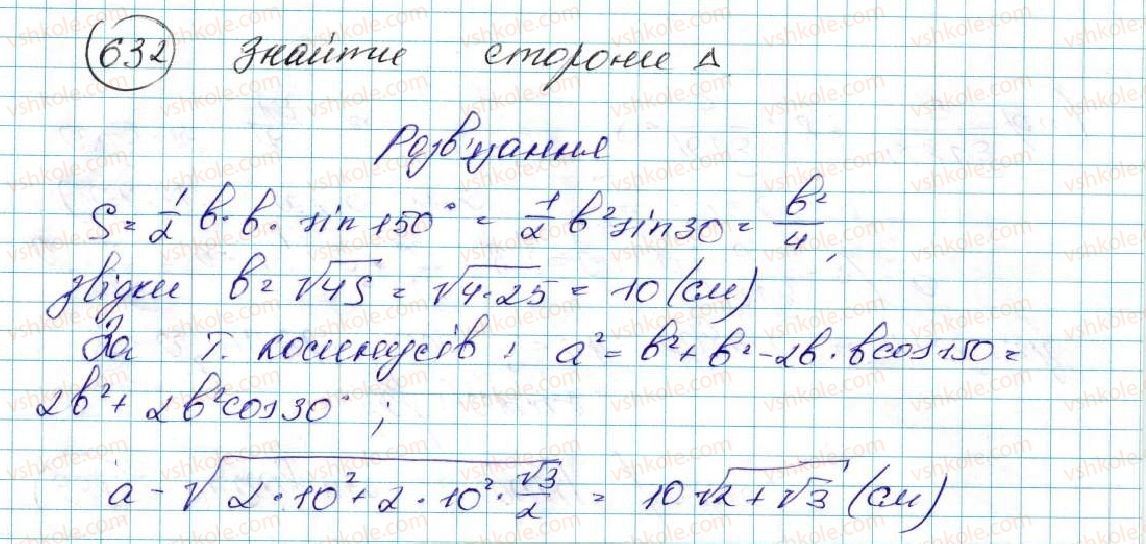 632 Знайти сторони Δ
Розв'язання
S = 1/2 b · b · sin 150° = 1/2 b² sin 30 = b²/4,
звідки b = √4S = √4·25 = 10 (см)
За т. косинусів: a² = b² + b² - 2b · b cos 150 =
2b² + 2b² cos 30°;
a - √2·10² + 2·10² · √3/2 = 10√2+√3 (см)